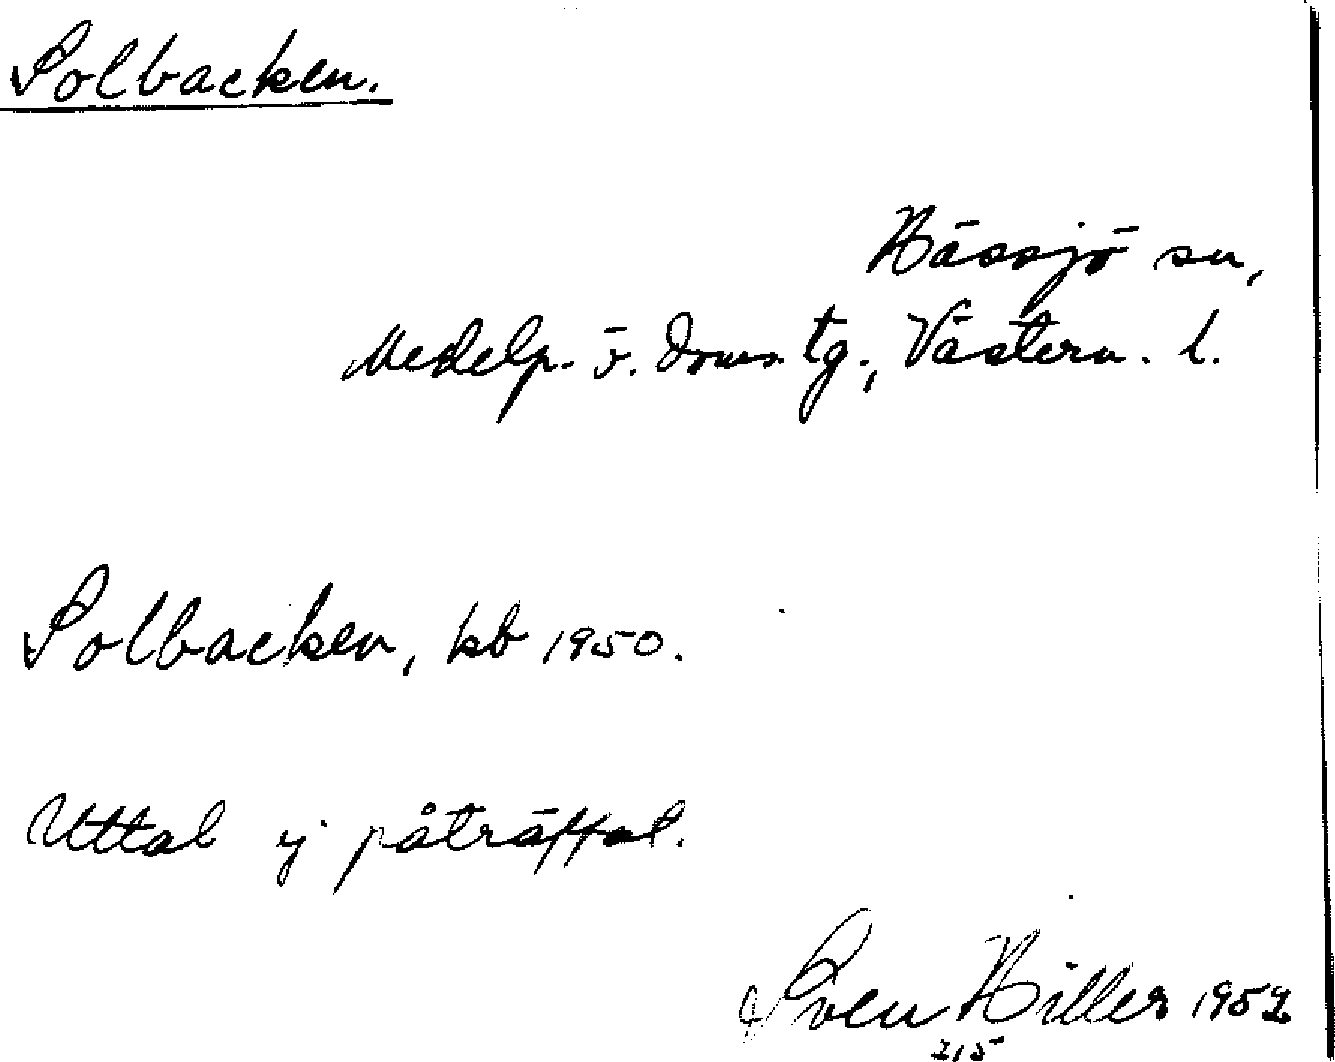 Solbacken.
Hässjö sn,
Medelp. ö. doms. tg., Västern. l.
Solbacken, kb 1950.
Uttal ej påträffat.
Sven Hiller 1952
215